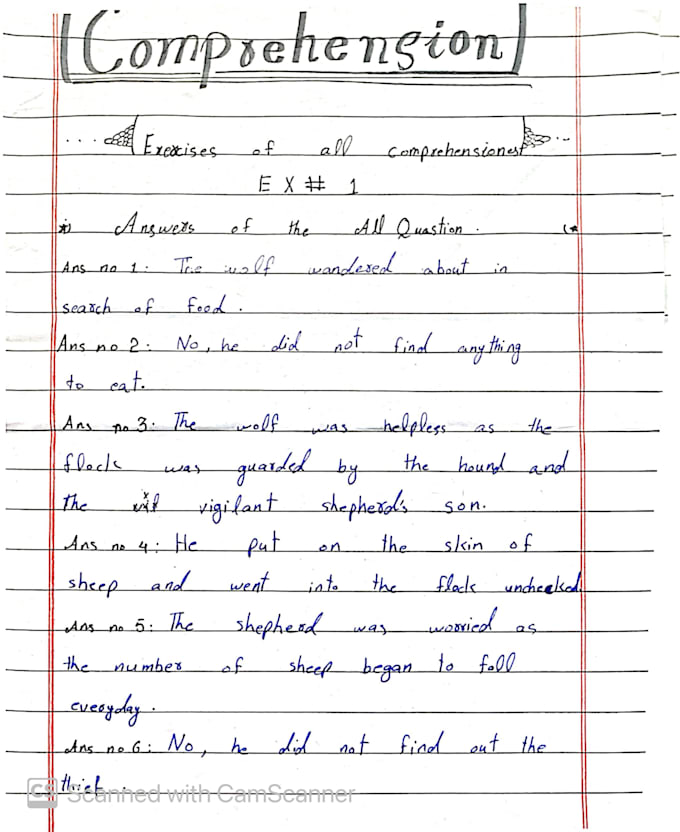 Comprehension
Exercises of all comprehensionest
EX # 1
Answers of the All Quastion.
Ans no 1: The wolf wandered about in
search of food.
Ans no 2: No, he did not find any thing
to eat.
Ans no 3: The wolf was helpless as the
flock was guarded by the hound and
the vigilant shepherd's son.
Ans no 4: He put on the skin of
sheep and went into the flock unchecked
Ans no 5: The shepherd was worried as
the number of sheep began to fall
everyday.
Ans no 6: No, he did not find out the
thief.
CS Scanned with CamScanner